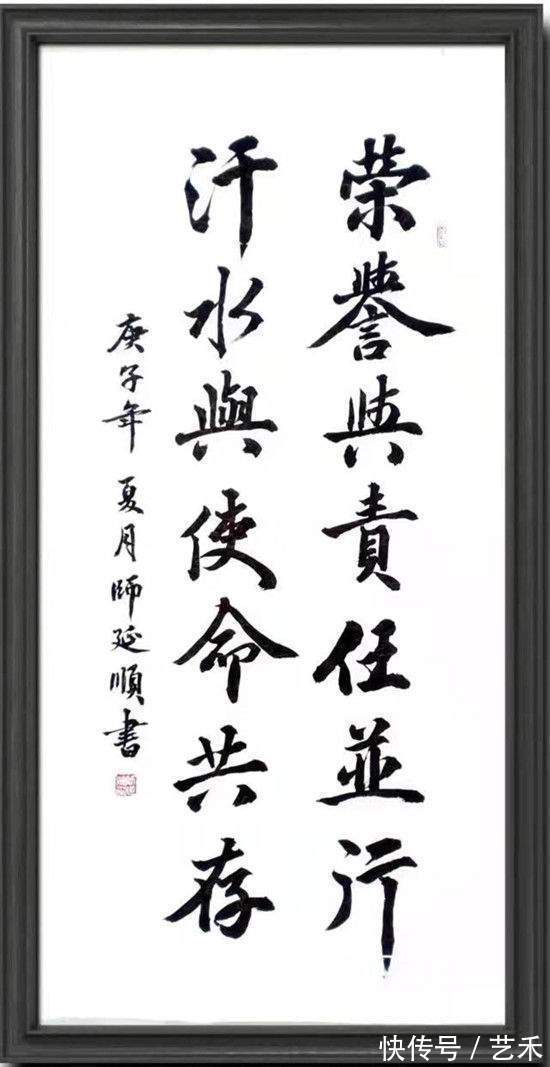 荣譽與責任並行
汗水與使命共存
庚子年夏月師延順書
快传号 / 艺禾